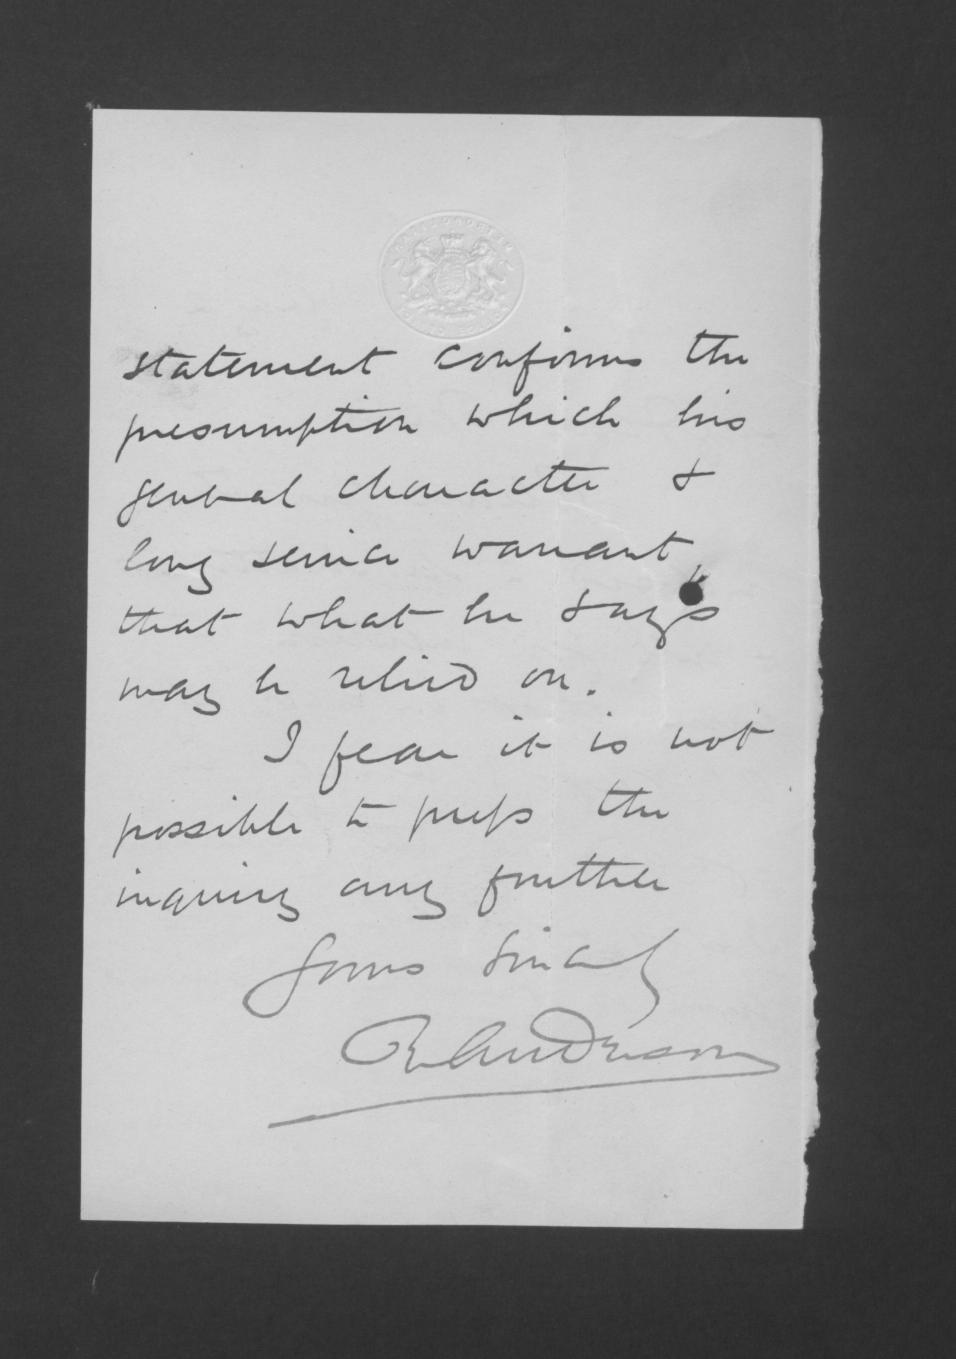 statement confirms the
presumption which his
general character &
long service warrant,
that what he says
may be relied on.
I fear it is not
possible to press the
inquiry any further
Yours sincerely
R Anderson